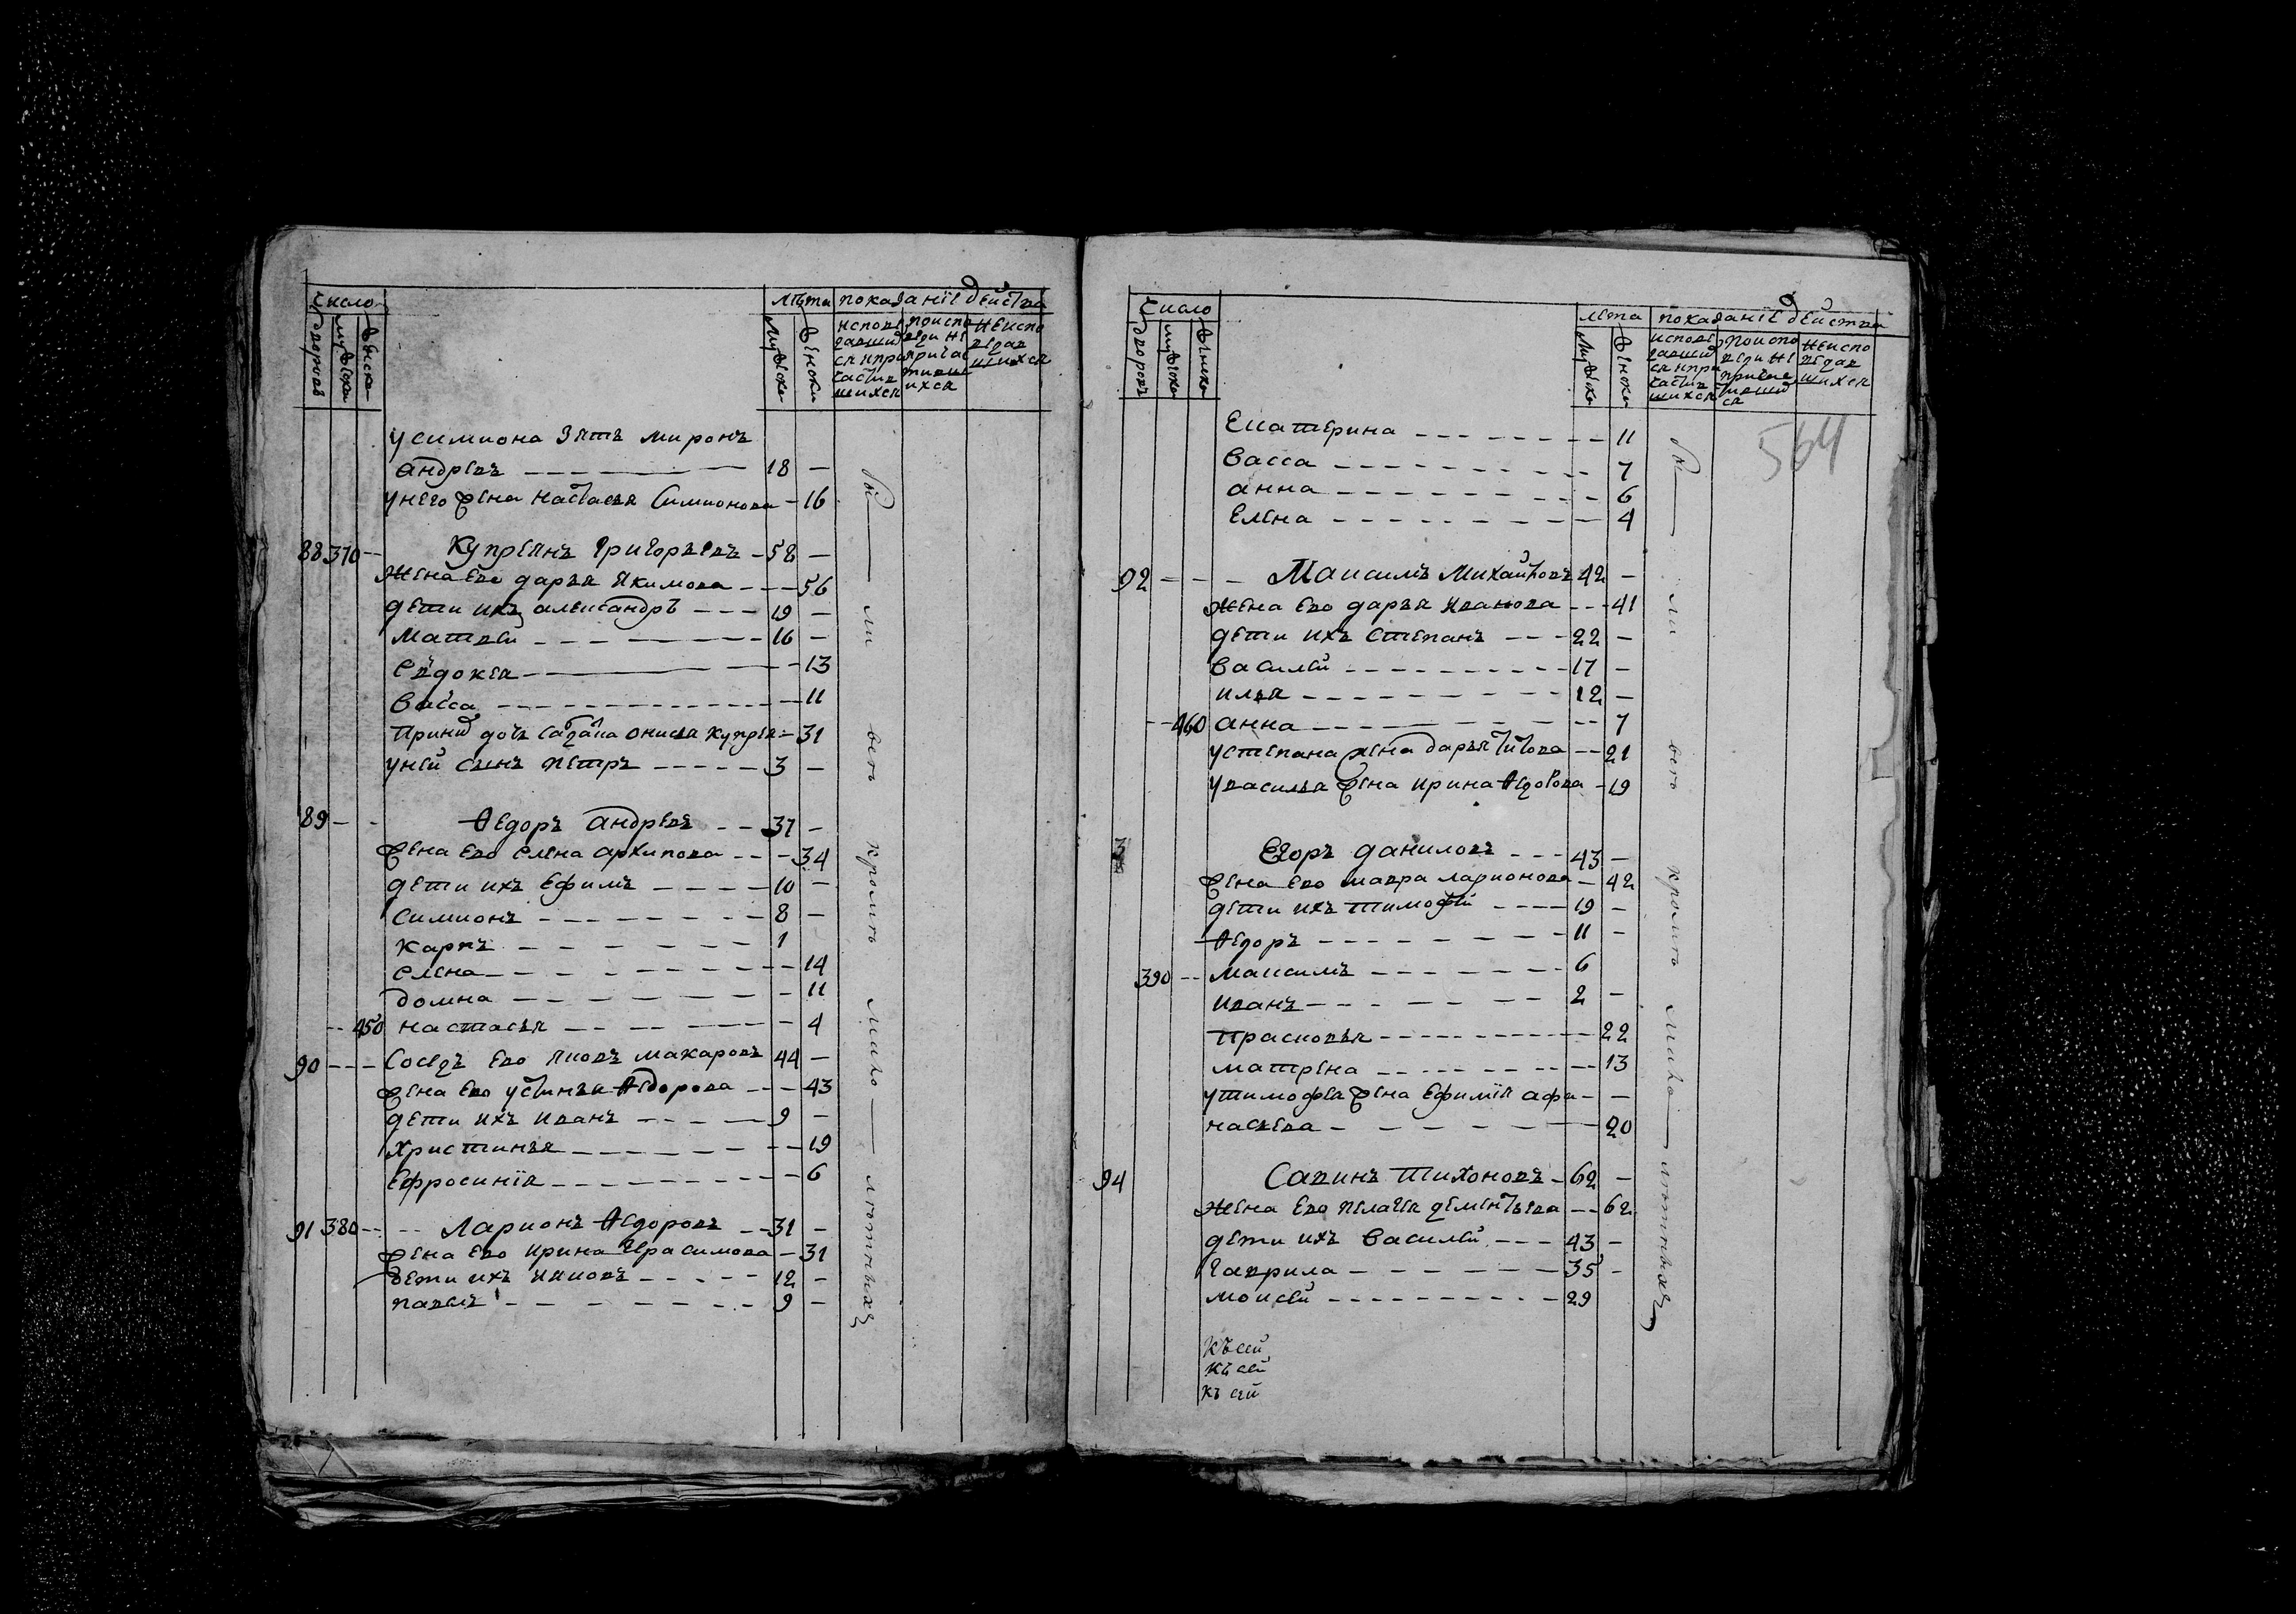 число
дворовъ
мужеска
женска
лѣта
мужеска
женска
показаніе действа
исповедавшихся и причастившихся
по исповеди не причастившихся
не исповедавшихся
у симиона зять миронъ
андреевъ 18
у него жена настасья симионова 16
88 370 Купреянъ григорьевъ 58
жена ево дарья якимова 56
дети ихъ александръ 19
матвей 16
евдокея 13
васса 11
дочь онисья купрея 31
у ней сынъ петръ 3
89 Ѳедоръ андреевъ 37
жена ево елена архипова 34
дети ихъ ефимъ 10
симионъ 8
карпъ 1
елена 14
домна 11
450 настасья 4
90 Соседъ ево яковъ макаровъ 44
жена ево устинья Ѳедорова 43
дети ихъ иванъ 9
христинья 19
ефросинія 6
91 380 Ларионъ Ѳедоровъ 31
жена ево ирина герасимова 31
дети ихъ яковъ 12
павелъ 9
вси были кроме мало летныхъ
число
дворовъ
мужеска
женска
лета
мужеска
женска
показаніе действа
исповедавшихся и причастившихся
по исповеди не причастившихся
не исповедавшихся
564
Екатерина 11
васса 7
анна 6
елена 4
92 Максимъ михайловъ 42
жена ево дарья иванова 41
дети ихъ степанъ 22
василей 17
илья 12
460 анна 7
у степана жена дарья титова 21
у василья жена ирина Ѳедорова 19
3 Егоръ даниловъ 43
жена ево мавра ларионова 42
дети ихъ тимофей 19
Ѳедоръ 11
390 максимъ 6
иванъ 2
прасковья 22
матрена 13
у тимофея жена ефимія афа
насьева 20
94 Савинъ тихоновъ 62
жена ево пелагея дементьева 62
дети ихъ василей 43
гаврила 35
моисей 29
къ сей
къ сей
къ сей
вси были кроме мало летныхъ